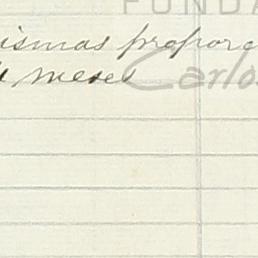 FUNDA
ismas proporc
meses
Carlos